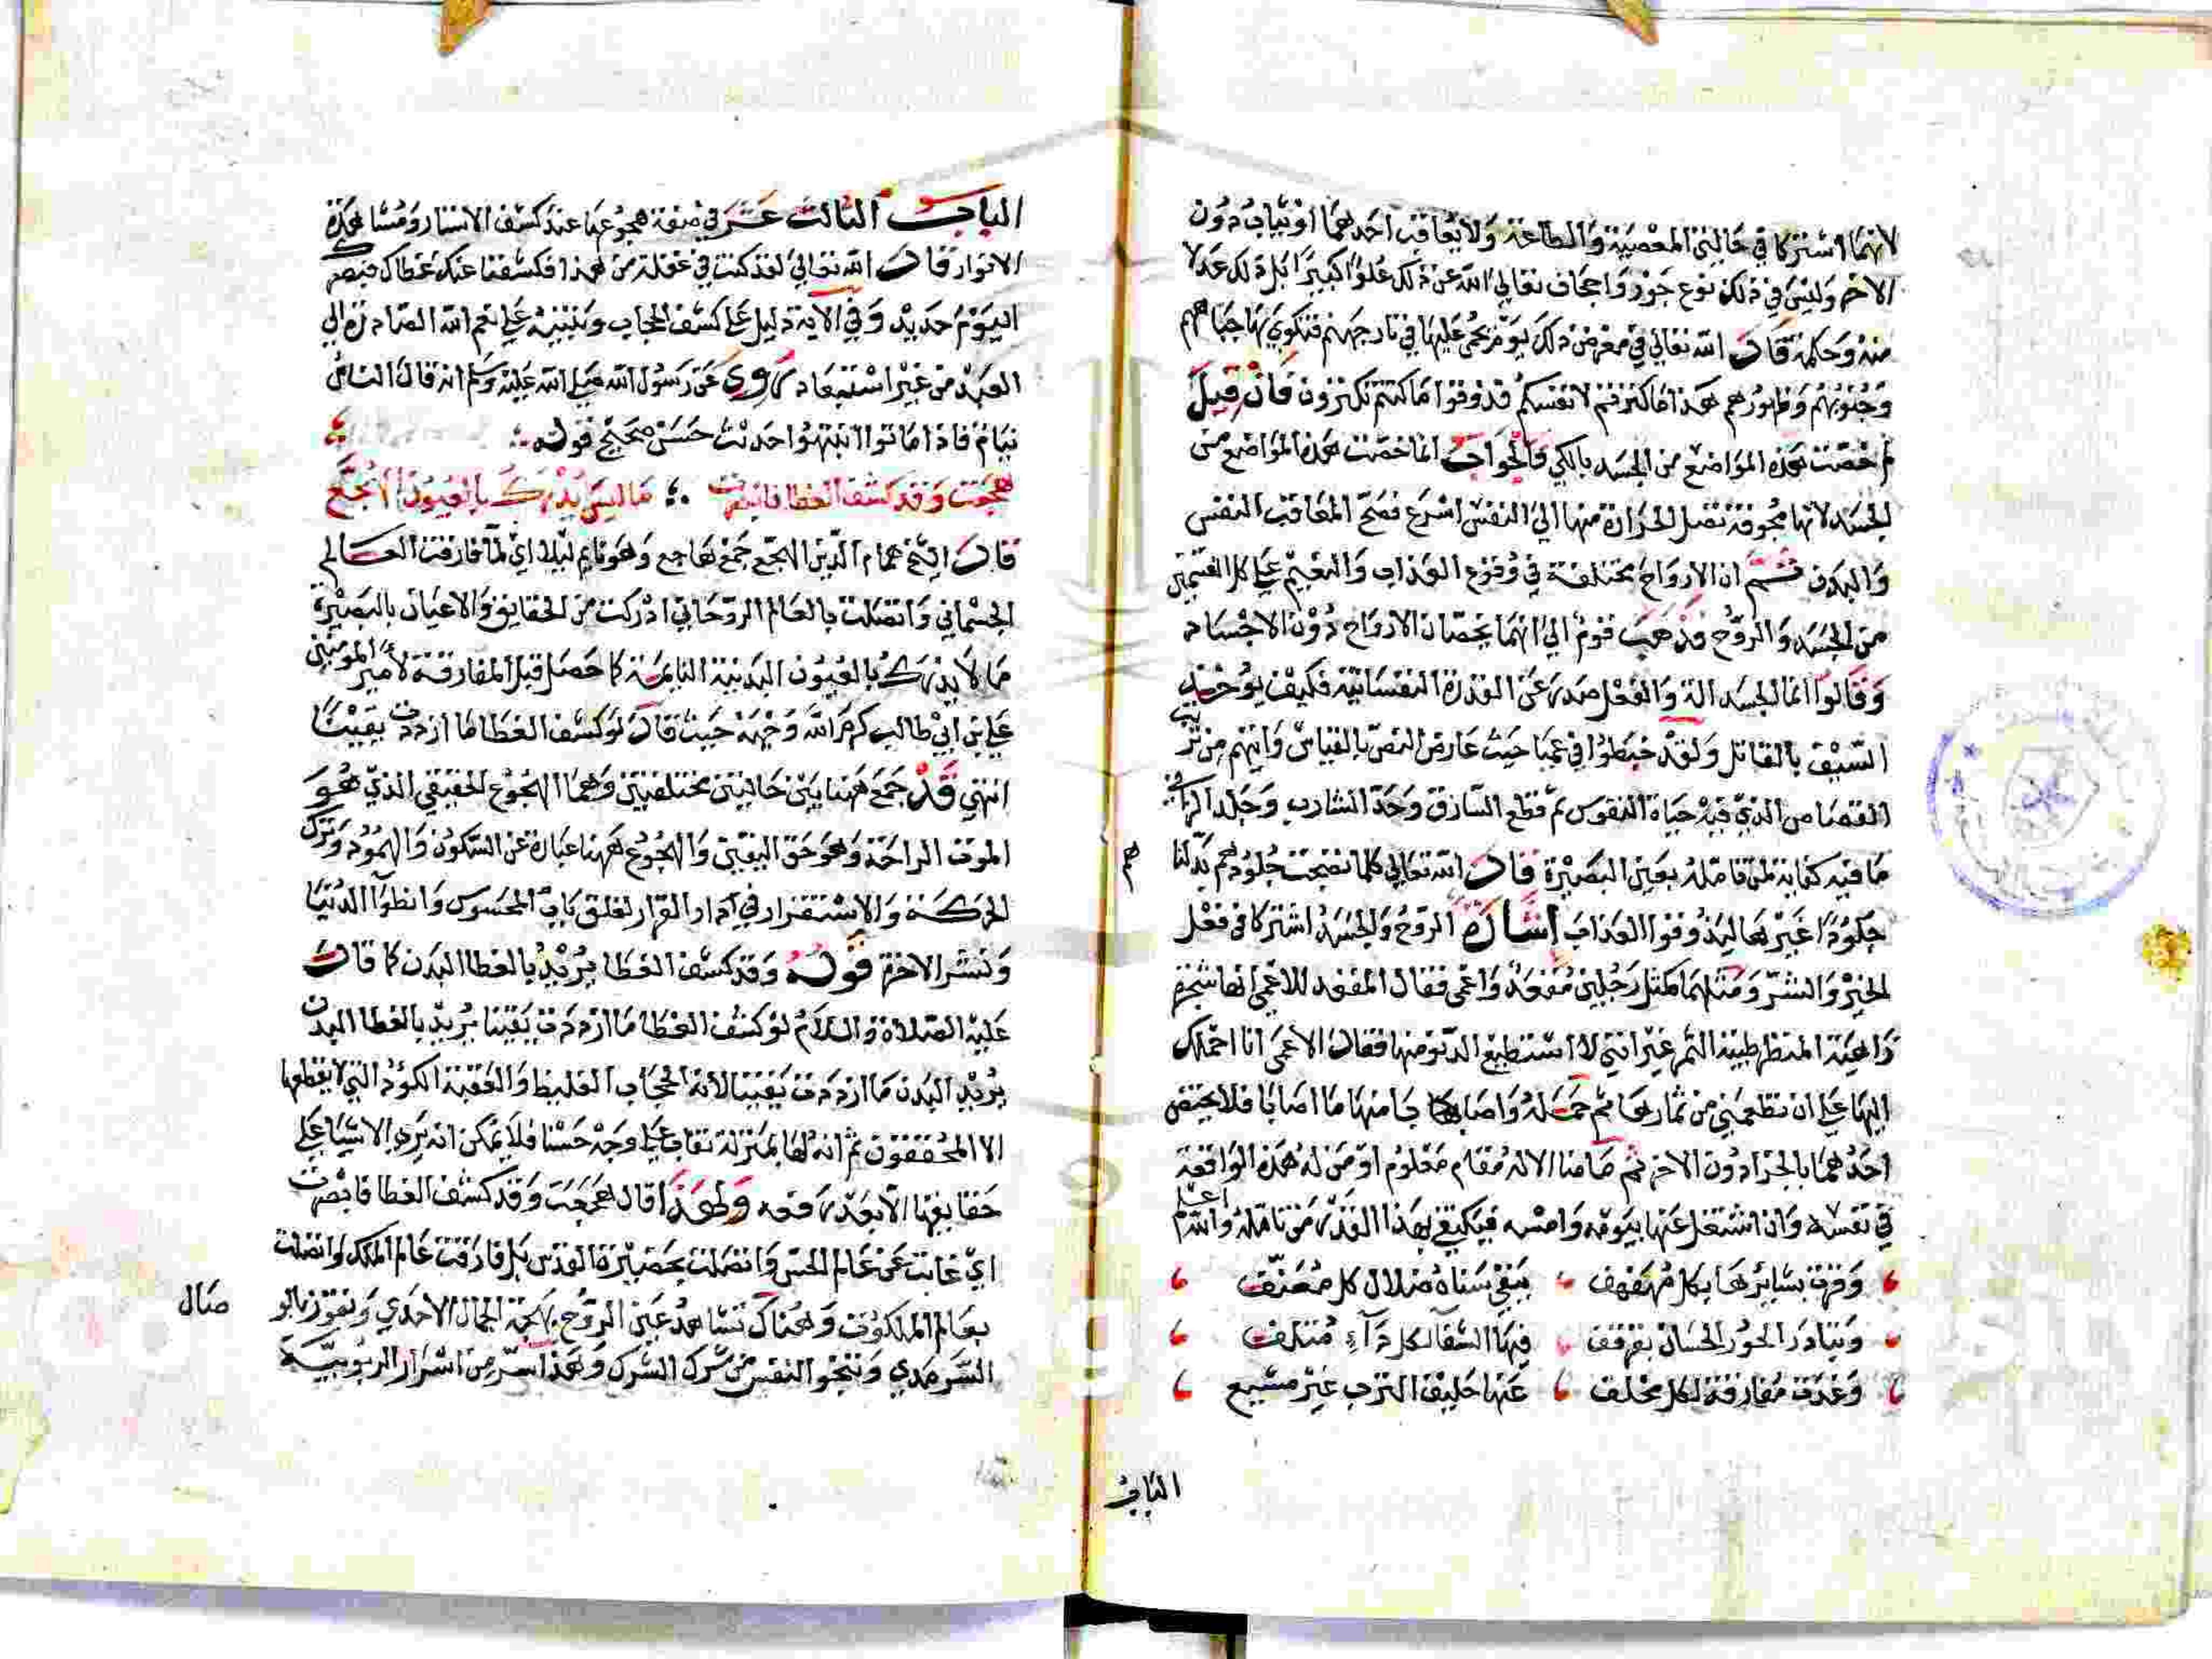 لانهما اشتركا في حالتي المعصية والطاعة ولا يعاقب احدهما او يثاب دون
الاخر وليس في ذلك نوع جور واجحاف تعالي الله عن ذلك علوا كبيرا بل ذلك عدلا
منه وحكمة قال الله تعالي في معرض ذلك يوم يحمي عليها في نار جهنم فتكوي بها جباههم
وجنوبهم وظهورهم هذا ما كنزتم لانفسكم فذوقوا ما كنتم تكنزون فان قيل
لم خصت هذه المواضع من الجسد بالكي والجواب انما خصت هذه المواضع من
الجسد لانها مجوفة تصل الحرارة منها الي النفس اسرع فصح المعاقب النفس
والبدن قسم ان الارواح مختلفة في وقوع العذاب والنعيم علي كلا القسمين
من الجسد والروح فذهب قوم الي انهما يخصان الارواح دون الاجساد
وقالوا انما الجسد الة والفعل صدر عن القدرة النفسانية فكيف يوخذ
السيف بالقاتل ولقد خبطوا في عميا حيث عارض النص بالقياس وانتم من
القصاص الذي فيه حياة النفوس ثم قطع السارق وحد الشارب وجلد الزاني
ما فيه كفاية لمن تامله بعين البصيرة قال الله تعالي كلما نضجت جلودهم بدلناهم
جلودا غيرها ليذوقوا العذاب اشارة الروح والجسد اشتركا في فعل
الخير والشر ومثلهما كمثل رجلين مقعد واعمي فقال المقعد للاعمي انها شجرة
المنظر طيبة الثمر غير انني لا استطيع الدنو منها فقال الاعمي انا احملك
اليها علي ان تطعمني من ثمارها ثم حمله واصابا منها ما اصابا فلا يختص
احدهما بالجزا دون الاخر ثم ما منا الا له مقام معلوم او من له هذه الواقعة
في نفسه وان اشتغل عنها بيومه وامسه فيكتفي بهذا القدر من تامله والله اعلم
وفرت بشايرها بكل مهفهف ينفي سناه ضلال كل معنف
وتبادر الحور الحسان بقرقف فيها الشفا لكل دآء متلف
وغدت مفارقة لكل مخلف عنها حليف الترب غير مشيع
الباب
الباب الثالث عشر في صفة هجوعها عند كشف الاستار ومشاهدة
الانوار قال الله تعالي لقد كنت في غفلة من هذا فكشفنا عنك غطاك فبصرك
اليوم حديد وفي الآية دليل علي كشف الحجاب وتنبيه علي نعم الله الصادرة الي
العبد من غير استبعاد روي عن رسول الله صلي الله عليه وسلم انه قال الناس
نيام فاذا ماتوا انتبهوا حديث حسن صحيح قوله
هجعت وقد كشف الغطا فابصرت ما ليس يدرك بالعيون الهجع
قال الشيخ همام الدين الهجع جمع هاجع وهو نايم ليلا اي لما فارقت العالم
الجسماني واتصلت بالعالم الروحاني ادركت من الحقايق والاعيان بالبصيرة
ما لا يدرك بالعيون البدنية النايمة كما حصل قبل المفارقة لأمير المومنين
علي بن ابي طالب كرم الله وجهه حيث قال لو كشف الغطا ما ازددت يقينا
انتهي قد جمع ههنا بين حالتين مختلفتين وهما الهجوع الحقيقي الذي هو
الموت الراحة وهو حق اليقين والهجوع ههنا عبارة عن السكون والهمود وترك
الحركة والاستقرار في دار القرار لغلق باب المحسوس وانطوآ الدنيا
ونشر الاخرة قوله وقد كشف الغطا يريد بالغطا البدن كما قال
عليه الصلاة والسلام لو كشف الغطا ما ازددت يقينا يريد بالغطا البدن
يريد البدن ما ازددت يقينا لأنه الحجاب الغليظ والعقبة الكؤد التي لا يقطعها
الا المحققون ثم انه لها بمنزلة نقاب علي وجه حسنا فلا يمكن انه يري الاشيا علي
حقايقها الا بعد رفعه ولهذا قال هجعت وقد كشف الغطا فابصرت
اي غابت عن عالم الحس واتصلت بحضيرة القدس بل فارقت عالم الملك واتصلت
بعالم الملكوت وهناك تشاهد عين الروح بهجة الجمال الاحدي وتفوز بالوصال
السرمدي وتنجو النفس من شرك الشرك وهذا سر من اسرار الربوبية